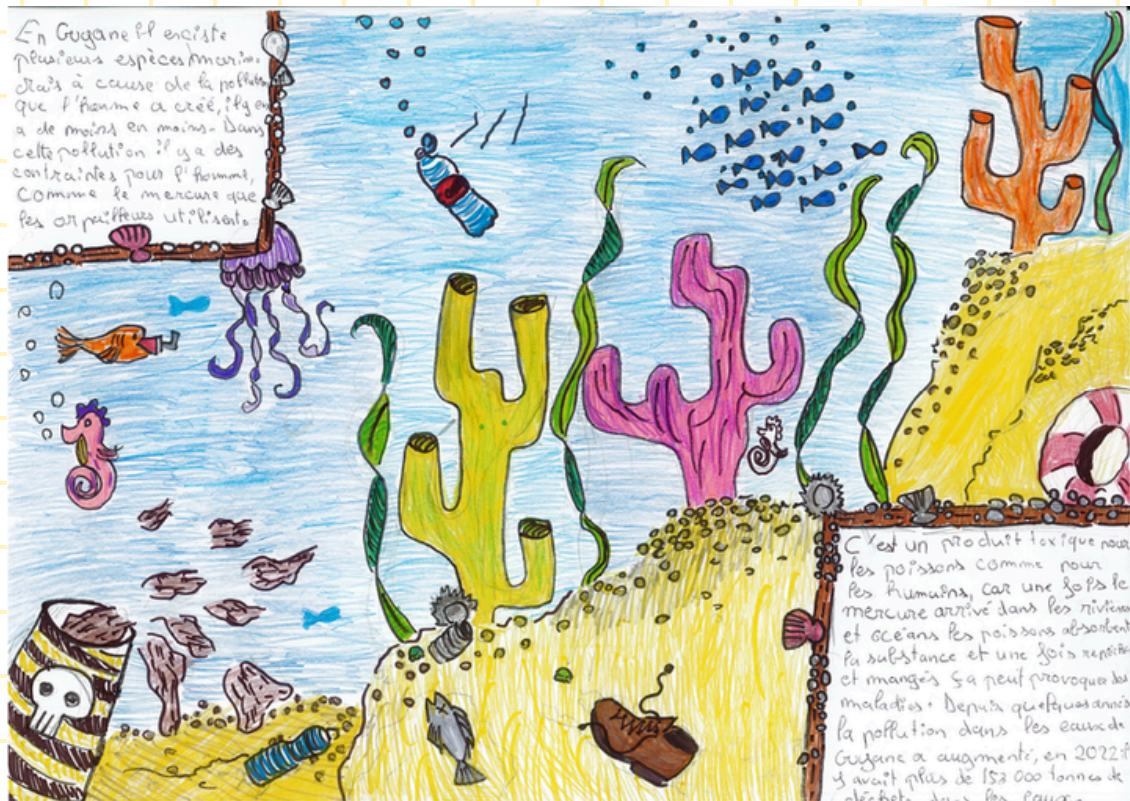 En Guyane il existe
plusieurs espèces marin.
mais à cause de la pollution
que l'homme a créé, il y en
a de moins en moins. Dans
cette pollution il y a des
contraintes pour l'homme,
comme le mercure que
les orpailleurs utilisent.
C'est un produit toxique pour
les poissons comme pour
les humains, car une fois le
mercure arrivé dans les rivières
et océans les poissons absorbent
la substance et une fois
et mangés ça peut provoquer des
maladies. Depuis quelques années
la pollution dans les eaux de
Guyane a augmenté, en 2022 il
y avait plus de 153 000 tonnes de
déchets dans les eaux.